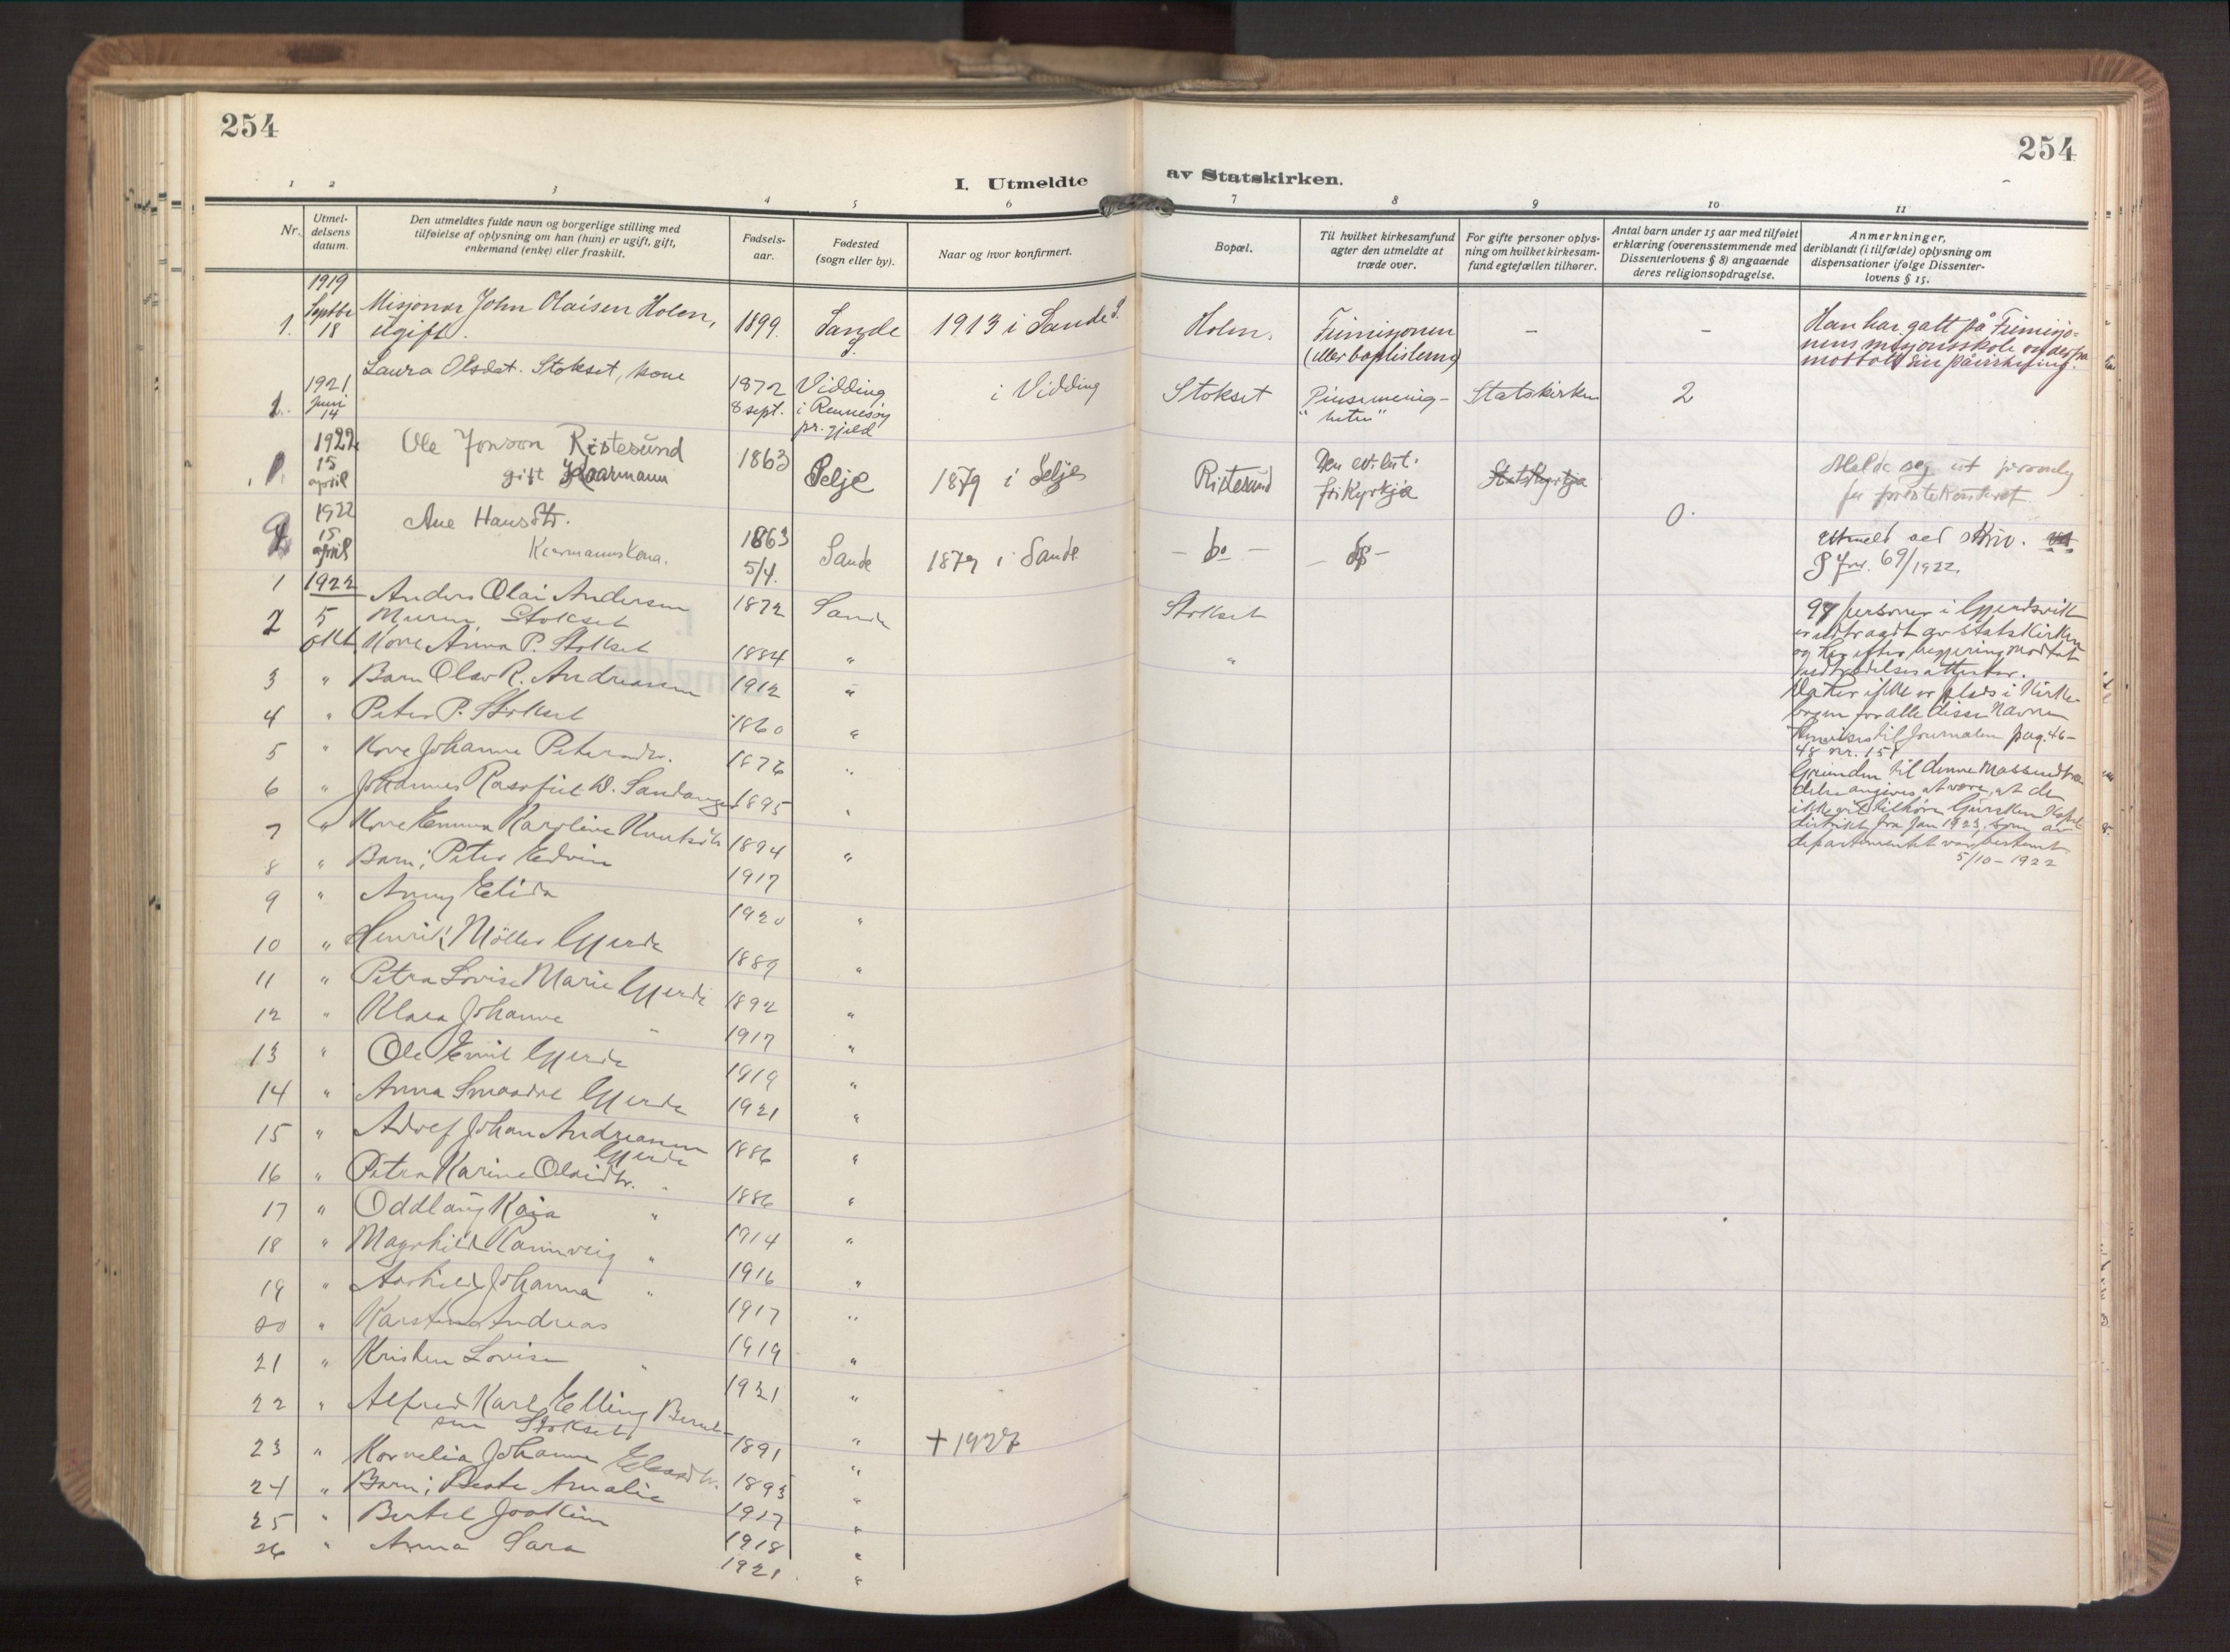 254
254
I. Utmeldte av Statskirken.
1 2 3 4 5 6 7 8 9 10 11
Nr.
Utmel-
delsens
datum.
Den utmeldtes fulde navn og borgerlige stilling med
tilføielse af oplysning om han (hun) er ugift, gift,
enkemand (enke) eller fraskilt.
Fødsels-
aar.
Fødested
(sogn eller by).
Naar og hvor konfirmert.
Bopæl.
Til hvilket kirkesamfund
agter den utmeldte at
træde over.
For gifte personer oplys-
ning om hvilket kirkesam-
fund egtefællen tilhører.
Antal barn under 15 aar med tilføiet
erklæring (overensstemmende med
Dissenterlovens § 8) angaaende
deres religionsopdragelse.
Anmerkninger,
deriblandt (i tilfælde) oplysning om
dispensationer ifølge Dissenter-
lovens § 15.
1919
1. Septbr 18 Misjonær John Olaisen Holen, ugift. 1899. Sande 1913 i Sande Holm. Frimisjonen (eller baptisterne) – –
Han har gått på Frimisjo-
nens misjonsskole og derfra
mottatt sin påvirkning.
1921 Juni 14 Laura Olsdat. Stokset, kone 1872 8 sept. Vidding i Rennesøy pr.gjeld i Vidding Stokset Pinsemenig- "heten" Statskirken 2
1922 15 april Ole Jonson Ristesund gift Kaarmann 1863 Selje 1879 i Selje Ristesund Den ev. lut. frikyrkja Statskyrkja
Melde seg ut personleg
for prestekontoret.
1922 15 april Ane Hansdtr. Kaarmannskona. 1863 5/4. Sande 1879 i Sande – do – – do – 0.
Utmeld ved skriv.
Jnr. 69/1922.
1 1922 Anders Olai Andersen 1872 Sande Stokset
2 5 Murer, Stokset
okt. Kone Anna P. Stokset 1884 " "
3 " Barn Olav R. Andreassen 1912 "
4 " Peter P. Stokset 1860 "
5 " Kone Johanne Petersdtr. 1876 "
6 " Johannes Rasmus D. Sandanger 1895 "
7 " Kone Emma Karoline Knutsdtr 1894 "
8 " Barn: Peter Edvin 1917
9 " Anny Elida 1920 "
10 " Henrik Möller Gjerde 1889 "
11 " Petra Lovise Marie Gjerde 1892 "
12 " Klara Johanne " 1917 "
13 " Ole Emil Gjerde 1919 "
14 " Anna Smaadel Gjerde 1921 "
15 " Adolf Johan Andreassen Gjerde 1886 "
16 " Petra Karine Olaidtr. " 1886 "
17 " Oddlaug Kaja " 1914 "
18 " Magnhild Rannveig " 1916 "
19 " Aashild Johanna " 1917 "
20 " Karsten Andreas 1919 "
21 " Kristen Lovise " 1921 "
22 " Alfred Karl Elling Bernt-
sen Stokset 1891 " + 1927
23 " Kornelia Johanne 1893 "
24 " Barn: Beate Amalie 1917 "
25 " Bertel Joakim 1918 "
26 " Anna Sara 1921 "
97 personer i Gjerdsvik
er udtraadt av statskirken
og har efter begjæring modtat
udtrædelsesattester.
Da her ikke er plads i Kirke-
bogen for alle disse Navne
henvises til Journalen pag. 46-
48 nr. 151
Grunden til denne Masseudtræ
delse angives at være, at de
ikke vil tilhøre Gursken Kapel
distrikt fra Jan 1923, som av
departementet var bestemt.
5/10 – 1922